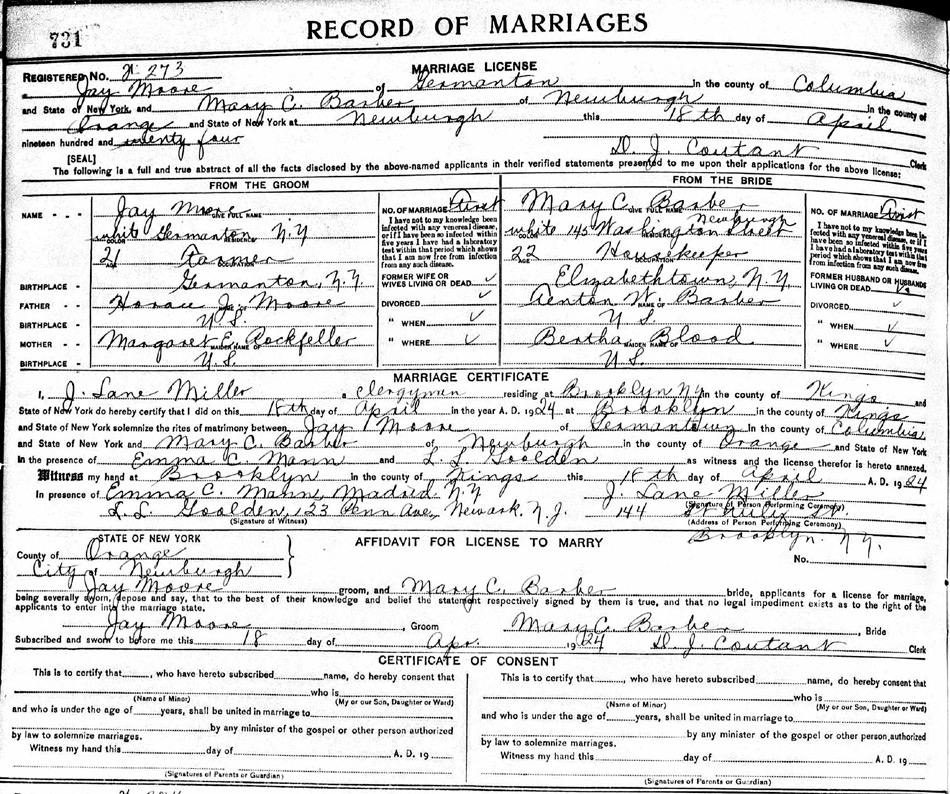 731
RECORD OF MARRIAGES
MARRIAGE LICENSE
REGISTERED No. 273
Jay Moore of Germanton in the county of Columbia
and State of New York, and Mary C. Barber of Newburgh in the county of
Orange and State of New York at Newburgh this 18th day of April
nineteen hundred and twenty four
D. J. Coutant Clerk
[SEAL]
The following is a full and true abstract of all the facts disclosed by the above-named applicants in their verified statements presented to me upon their applications for the above license:
FROM THE GROOM
NAME - - - Jay Moore
GIVE FULL NAME
white Germanton N.Y
COLOR RESIDENCE
21 Farmer
AGE OCCUPATION
BIRTHPLACE - Germanton, N.Y.
FATHER - - Horace J. Moore
NAME OF
BIRTHPLACE - U.S.
MOTHER - - Margaret E. Rockfeller
MAIDEN NAME OF
BIRTHPLACE - U.S.
NO. OF MARRIAGE First
I have not to my knowledge been infected with any venereal disease, or if I have been so infected within five years I have had a laboratory test within that period which shows that I am now free from infection from any such disease.
FORMER WIFE OR
WIVES LIVING OR DEAD
DIVORCED
" WHEN
" WHERE
FROM THE BRIDE
Mary C. Barber
GIVE FULL NAME
Newburgh
white 145 Washington Street
COLOR RESIDENCE
22 Housekeeper
AGE OCCUPATION
Elizabethtown, N.Y.
W. Barber
NAME OF
U.S.
Bertha Blood
MAIDEN NAME OF
U.S.
NO. OF MARRIAGE First
I have not to my knowledge been infected with any venereal disease, or if I have been so infected within five years I have had a laboratory test within that period which shows that I am now free from infection from any such disease.
FORMER HUSBAND OR HUSBANDS
LIVING OR DEAD
DIVORCED
" WHEN
" WHERE
MARRIAGE CERTIFICATE
I, J. Lane Miller a clergyman residing at Brooklyn N.Y. in the county of Kings and
State of New York do hereby certify that I did on this 18th day of April in the year A. D. 1924 at Brooklyn in the county of Kings
and State of New York solemnize the rites of matrimony between Jay Moore of Germantown in the county of Columbia
and State of New York and Mary C. Barber of Newburgh in the county of Orange and State of New York
In the presence of Emma C. Mann and L. L. Goolden as witness and the license therefor is hereto annexed.
Witness my hand at Brooklyn in the county of Kings this 18th day of April A. D. 1924
In presence of Emma C. Mann, Madrid N.Y J. Lane Miller
(Signature of Person Performing Ceremony)
L. L. Goolden, 123 Penn Ave, Newark, N.J. 144 St.
(Signature of Witness) (Address of Person Performing Ceremony)
Brooklyn. N.Y.
STATE OF NEW YORK
County of Orange
City of Newburgh
AFFIDAVIT FOR LICENSE TO MARRY
No.
Jay Moore groom, and Mary C. Barber bride, applicants for a license for marriage,
being severally sworn, depose and say, that to the best of their knowledge and belief the statement respectively signed by them is true, and that no legal impediment exists as to the right of the
applicants to enter into the marriage state.
Jay Moore, Groom Mary C. Barber, Bride
Subscribed and sworn to before me this 18 day of Apr. 1924 D. J. Coutant Clerk
CERTIFICATE OF CONSENT
This is to certify that, who have hereto subscribed name, do hereby consent that
who is
(Name of Minor) (My or our Son, Daughter or Ward)
and who is under the age of years, shall be united in marriage to
by any minister of the gospel or other person authorized
by law to solemnize marriages.
Witness my hand this day of A. D. 19
(Signatures of Parents or Guardian)
This is to certify that, who have hereto subscribed name, do hereby consent that
who is
(Name of Minor) (My or our Son, Daughter or Ward)
and who is under the age of years, shall be united in marriage to
by any minister of the gospel or other person, authorized
by law to solemnize marriages.
Witness my hand this day of A. D. 19
(Signatures of Parents or Guardian)